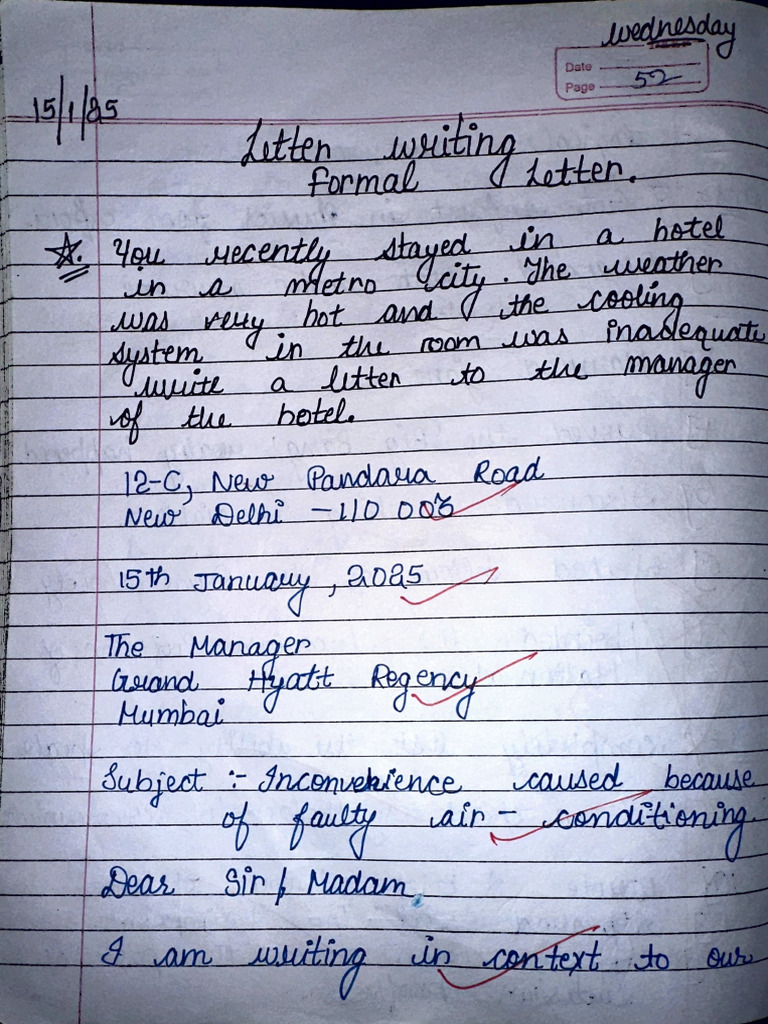 wednesday
Date
Page 52
15/1/25
Letter writing
formal Letter.
You recently stayed in a hotel
in a metro city. The weather
was very hot and the cooling
system in the room was inadequate
write a letter to the manager
of the hotel.
12-C, New Pandara Road
New Delhi - 110 003
15th January, 2025
The Manager
Grand Hyatt Regency
Mumbai
Subject :- Inconvenience caused because
of faulty air - conditioning.
Dear Sir / Madam
I am writing in context to our